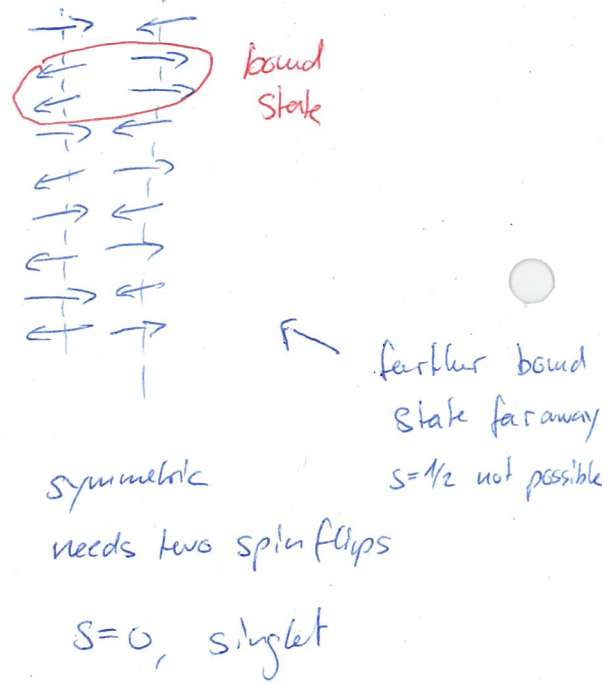 bound
state
further bound
state far away
s=1/2 not possible
symmetric
needs two spin flips
S=0, singlet